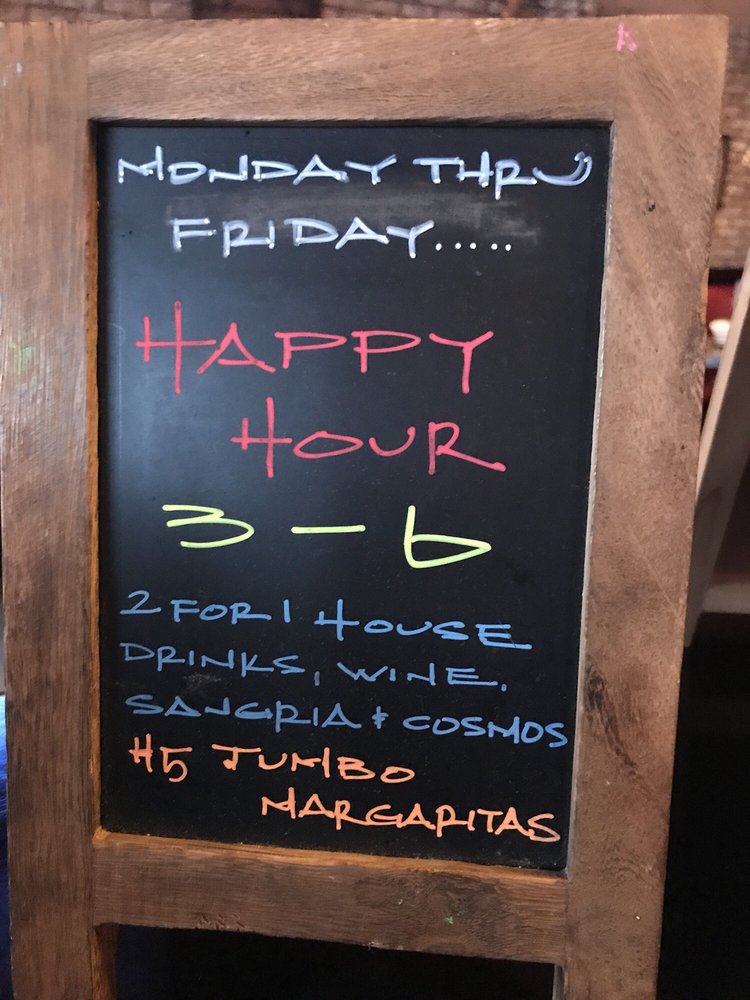 MONDAY THRU
FRIDAY.....
HAPPY
HOUR
3 - 6
2 FOR 1 HOUSE
DRINKS, WINE,
SANGRIA & COSMOS
$5 JUMBO
MARGARITAS